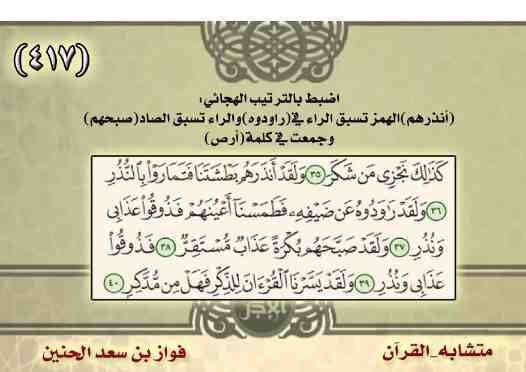 (٤١٧)
اضبط بالترتيب الهجائي:
(أنذرهم)الهمز تسبق الراء في(راودوه)والراء تسبق الصاد(صبحهم)
وجمعت في كلمة(أرص)
كَذَٰلِكَ نَجْزِي مَن شَكَرَ ٣٥ وَلَقَدْ أَنذَرَهُم بَطْشَتَنَا فَتَمَارَوْا۟ بِالنُّذُرِ
٣٦ وَلَقَدْ رَٰوَدُوهُ عَن ضَيْفِهِۦ فَطَمَسْنَا أَعْيُنَهُمْ فَذُوقُوا۟ عَذَابِي
وَنُذُرِ ٣٧ وَلَقَدْ صَبَّحَهُم بُكْرَةً عَذَابٌ مُّسْتَقِرٌّ ٣٨ فَذُوقُوا۟
عَذَابِي وَنُذُرِ ٣٩ وَلَقَدْ يَسَّرْنَا الْقُرْءَانَ لِلذِّكْرِ فَهَلْ مِن مُّدَّكِرٍ ٤٠
متشابه_القرآن
فواز بن سعد الحنين